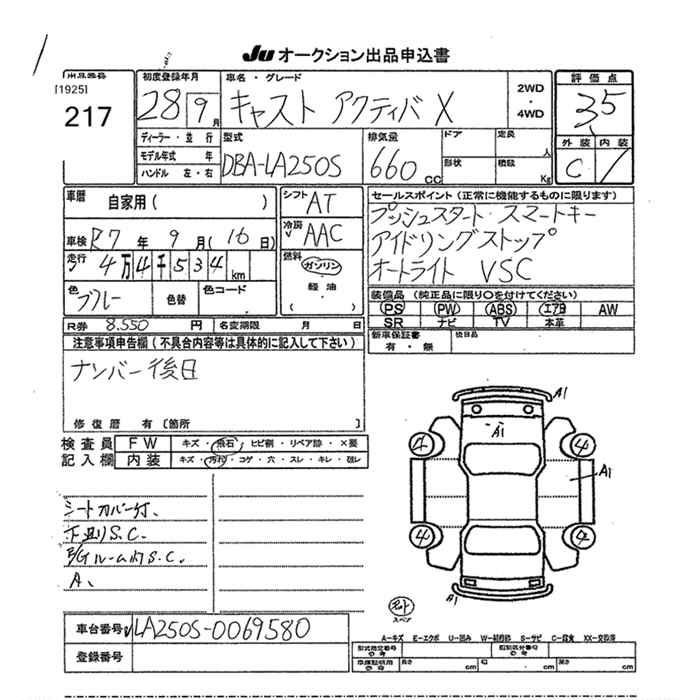 Ju オークション出品申込書
出品番号
[1925]
217
初度登録年月
28 9月
車名・グレード
キャスト アクティバ X
2WD
・
4WD
評価点
3.5
外装 内装
C
ディーラー・並行
モデル年式 年
ハンドル 左・右
型式
DBA-LA250S
排気量
660 CC
ドア
形状
定員
人
積載
Kg
車歴
自家用( )
車検 R7 年 9 月(16 日)
走行 4万4千534 km
色
ブルー
色替
色コード
シフト AT
冷房 AAC
燃料
ガソリン
・
軽油
( )
セールスポイント(正常に機能するものに限ります)
プッシュスタート・スマートキー
アイドリングストップ
オートライト VSC
装備品(純正品に限り〇を付けてください)
PS PW ABS エアB AW
SR ナビ TV 本革
新車保証書
有・無
後日品
R券 8.550 円
名変期限 月 日
注意事項申告欄(不具合内容等は具体的に記入して下さい)
ナンバー後日
修復歴 有〔箇所 〕
検査員 FW キズ・飛石・ヒビ割・リペア跡・×要
記入欄 内装 キズ・汚れ・コゲ・穴・スレ・キレ・破レ
シートカバー付、
下廻りS.C.
ルーム内S.C.
A、
A1
A1
A1
4
4
4
A1
スペア
車台番号 LA250S-0069580
登録番号
A-キズ E-エクボ U-凹み W-補修跡 S-サビ C-腐食 XX-交換済
型式指定番号
類別区分番号
車庫証明用
長さ cm 幅 cm 高さ cm